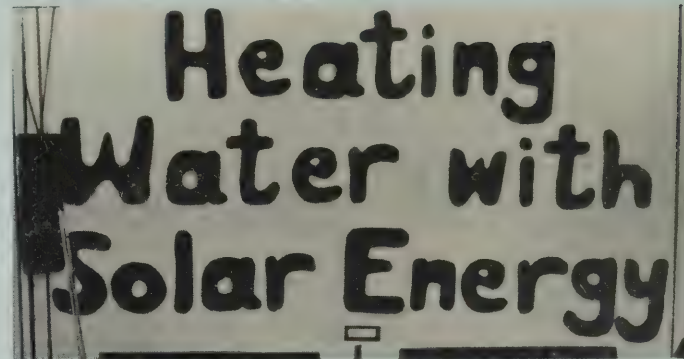 Heating
Water with
Solar Energy